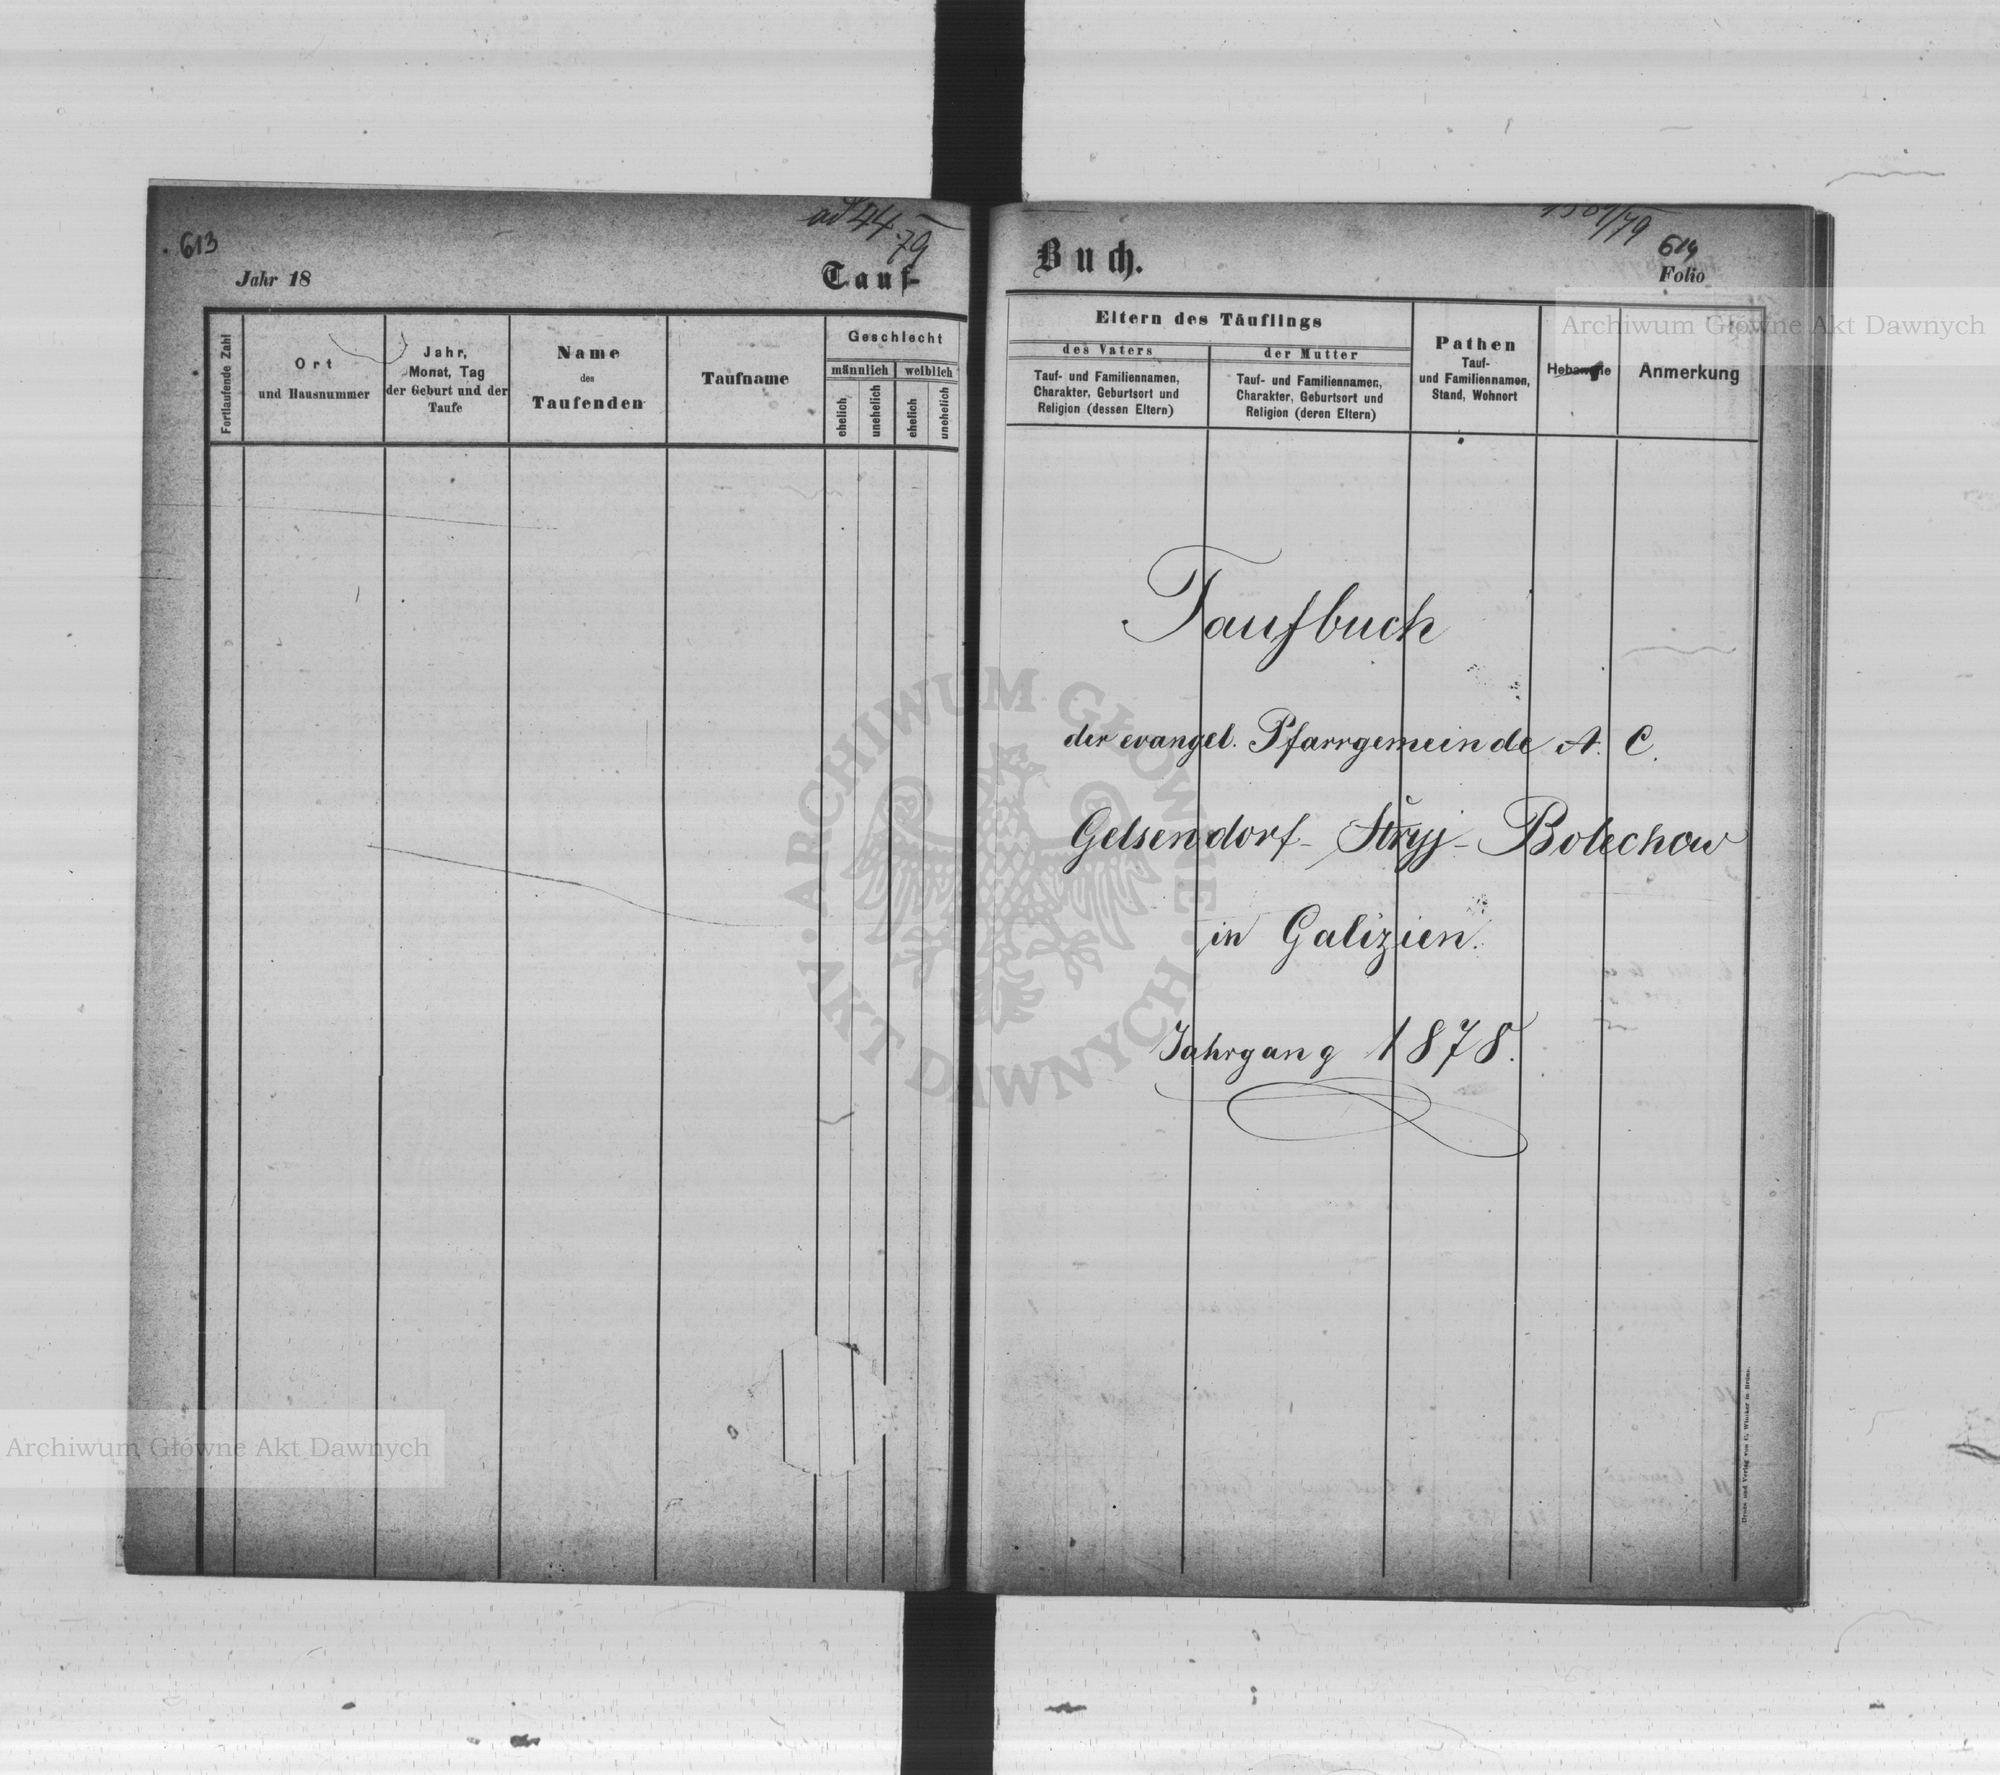 613
ad 44
79
Jahr 18
Tauf-
Fortlaufende Zahl
Ort
und Hausnummer
Jahr,
Monat, Tag
der Geburt und der
Taufe
Name
des
Taufenden
Taufname
Geschlecht
männlich
weiblich
ehelich
unehelich
ehelich
unehelich
614
Buch.
Folio
Eltern des Täuflings
des Vaters
der Mutter
Tauf- und Familiennamen,
Charakter, Geburtsort und
Religion (dessen Eltern)
Tauf- und Familiennamen,
Charakter, Geburtsort und
Religion (deren Eltern)
Pathen
Tauf-
und Familiennamen,
Stand, Wohnort
Hebamme
Anmerkung
Taufbuch
der evangel. Pfarrgemeinde A. C.
Gelsendorf-Stryj-Bolechow
in Galizien.
Jahrgang 1878.
Druck und Verlag von C. Winiker in Brünn.
Archiwum Główne Akt Dawnych
Archiwum Główne Akt Dawnych
ARCHIWUM GŁÓWNE · AKT DAWNYCH ·